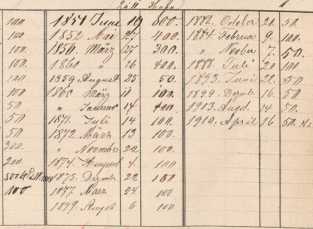 100 1851 Juni 19 800. 1882. October 20 50.
100 1852 Mai 27 400 1884. Februar 9. 100.
100 1856 März 25 300. " 7. 50.
100 1860 26 400. 1888. Juli 20 100.
100 1859 August 25 50. 1893. Juni 50
100 1868 März 11 100. 1899. Dezemb. 16 50.
50 " 14 1903. Augst. 14 50.
50 1871. Juli 14 100. 1910. April 16 50.
50 1872. März 13 100.
200 " November 22 100.
200 1874 August 4 100
1875. Dezemb. 22 100
100 1877 März 24 100
1879 Augst 6 100